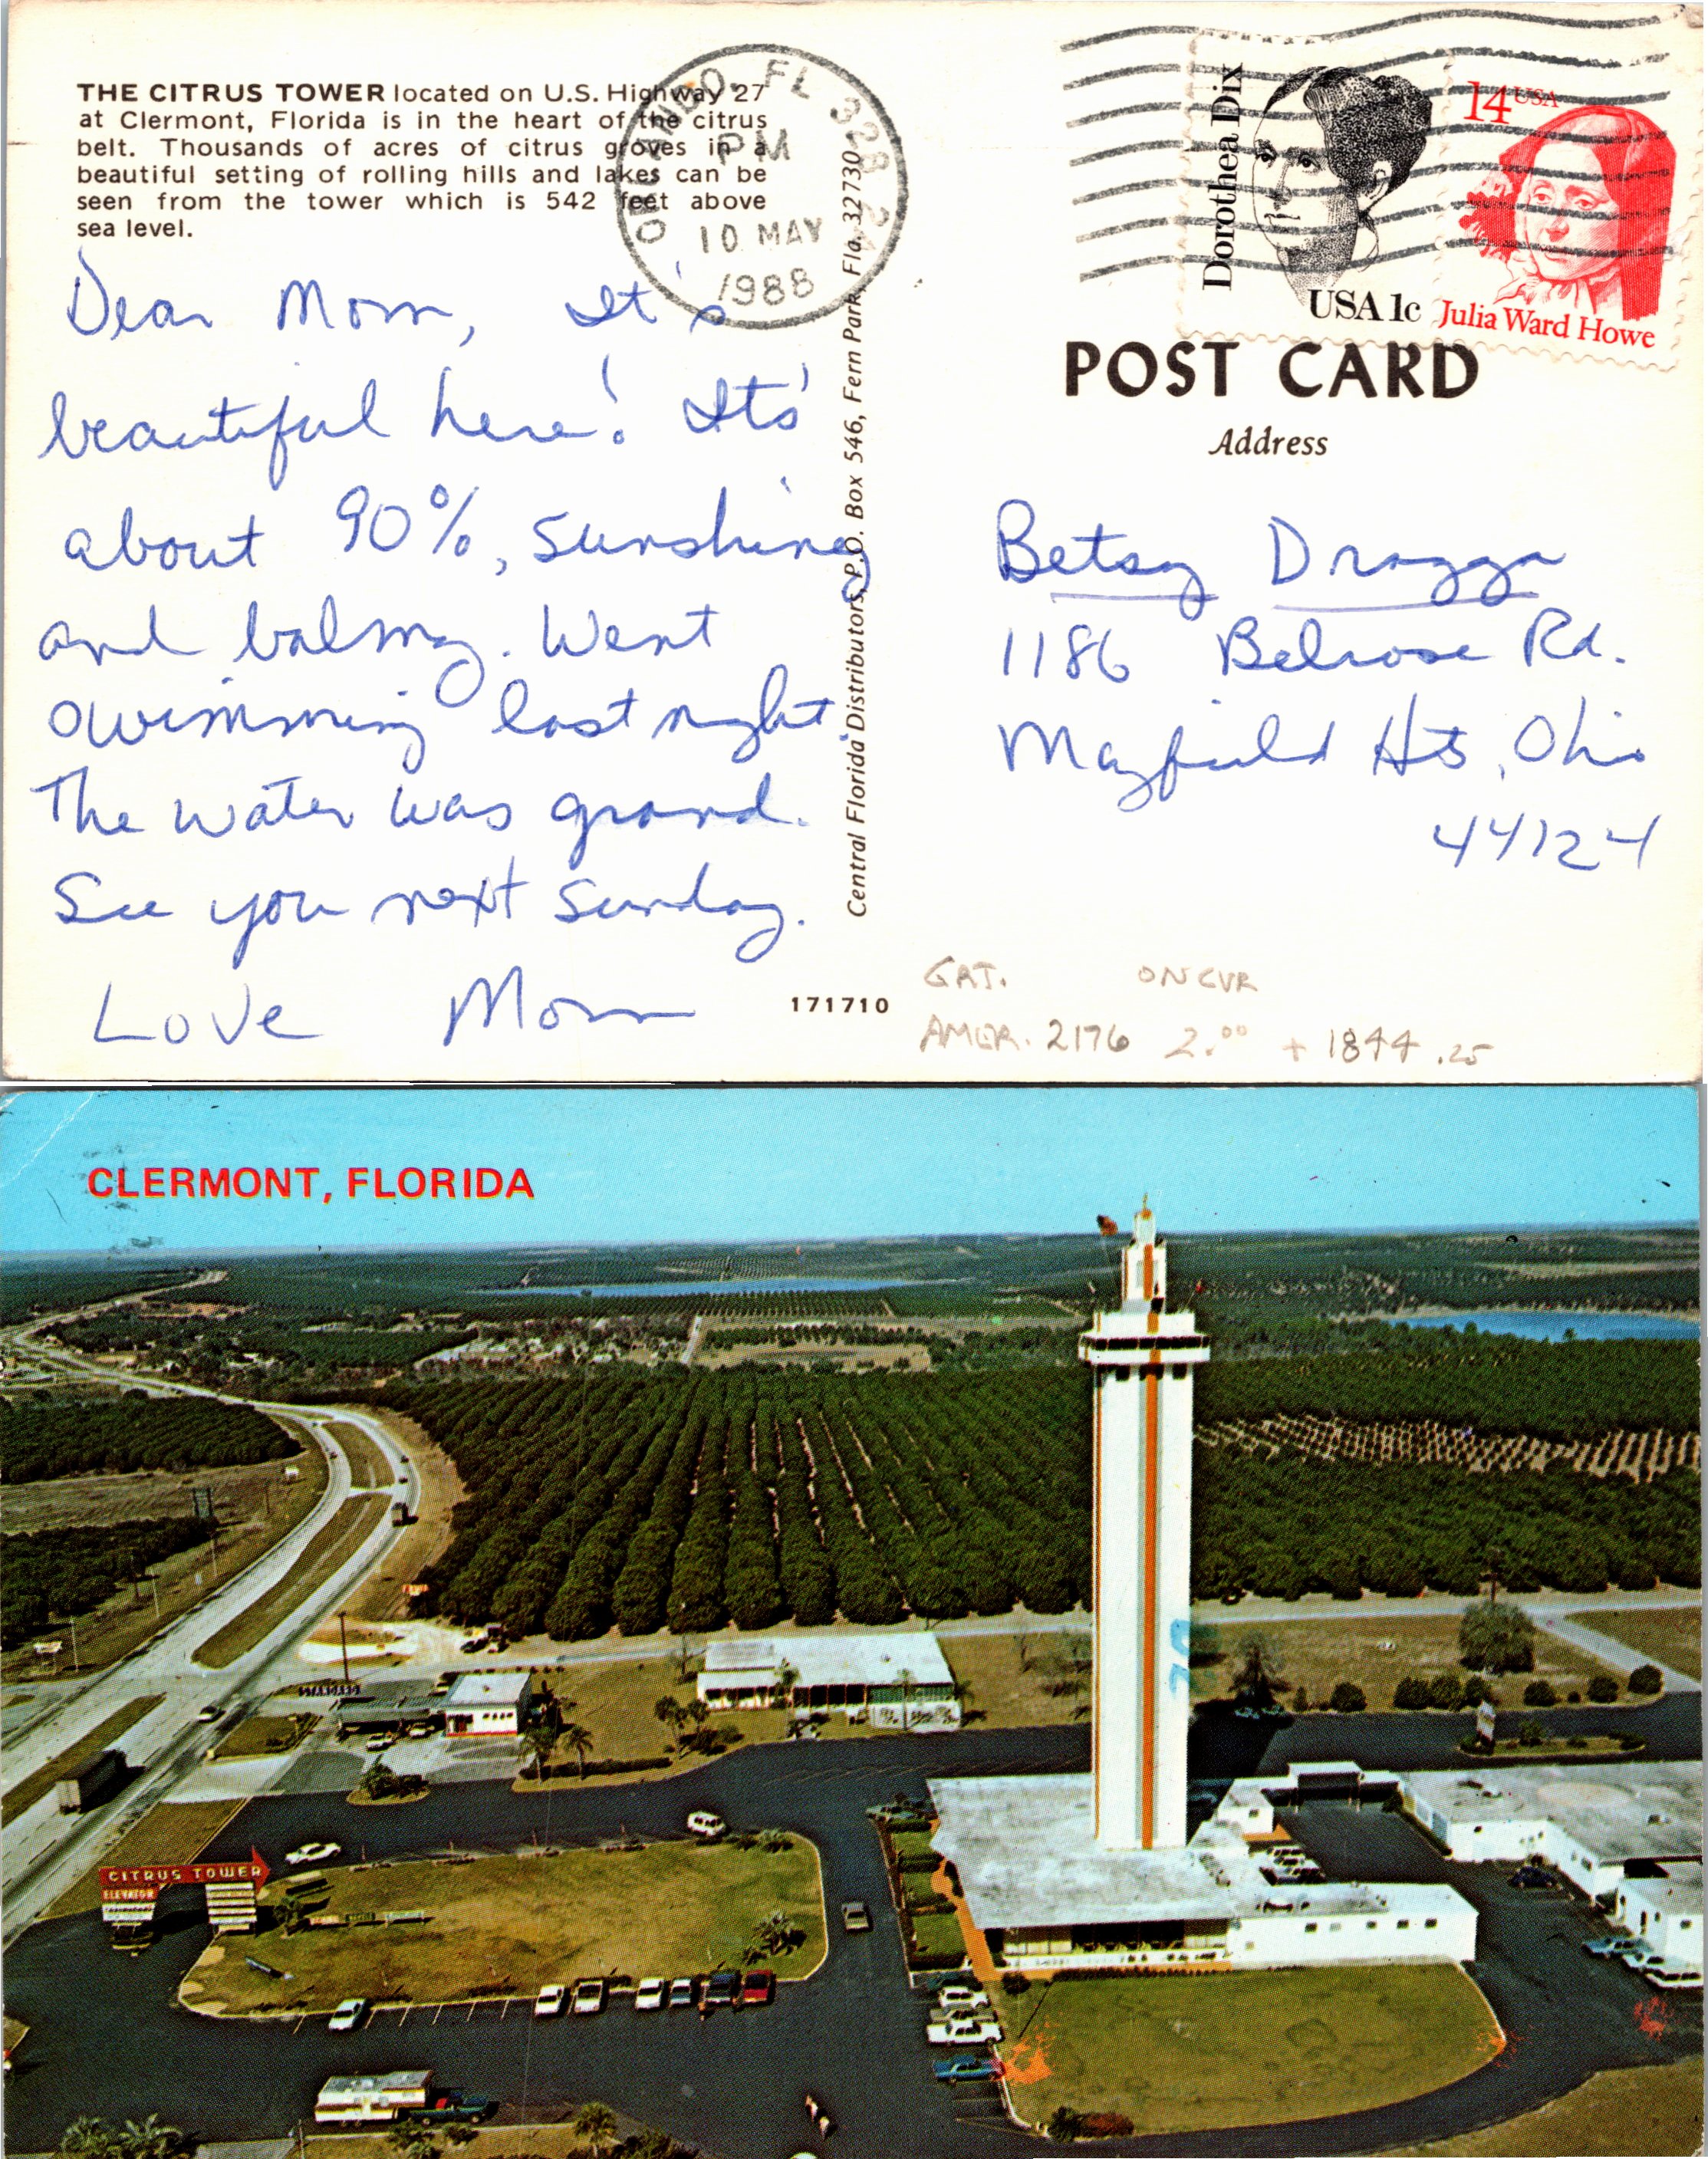 THE CITRUS TOWER located on U.S. Highway 27
at Clermont, Florida is in the heart of the citrus
belt. Thousands of acres of citrus groves in a
beautiful setting of rolling hills and lakes can be
seen from the tower which is 542 feet above
sea level.
ORLANDO, FL 328
PM
10 MAY
1988
Dorothea Dix
USA 1c
14 USA
Julia Ward Howe
POST CARD
Address
Dear Mom, It's
beautiful here! It's
about 90%, sunshiney
and balmy. Went
swimming last night.
The water was grand.
See you next Sunday.
Love Mom
Central Florida Distributors, P.O. Box 546, Fern Park, Fla. 32730
Betsy Dragga
1186 Belrose Rd.
Mayfield Hts, Ohio
44124
171710
GRT. ON CVR
AMER. 2176 2.00 + 1844 .25
CLERMONT, FLORIDA
CITRUS TOWER
ELEVATOR